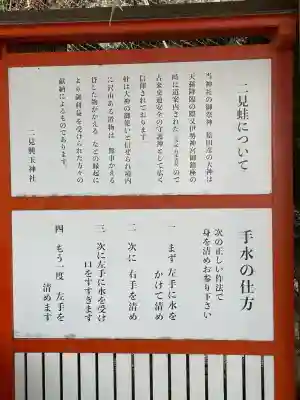 二見蛙について
当神社の御祭神 猿田彦大神は
天孫降臨の際又伊勢神宮御鎮座の
時に道案内された ので
古来交通安全の守護神として広く
信仰されております
蛙は大神の御使いと信ぜられ境内
に沢山ある置物は 無事かえる
貸した物がかえる などの縁起に
より御利益を受けられた方々の
献納によるものであります。
二見興玉神社
手水の仕方
次の正しい作法で
身を清めお参り下さい
一 まず 左手に水を
かけて清め
二 次に 右手を清め
三 次に左手に水を受け
口をすすぎます
四 もう一度 左手を
清めます